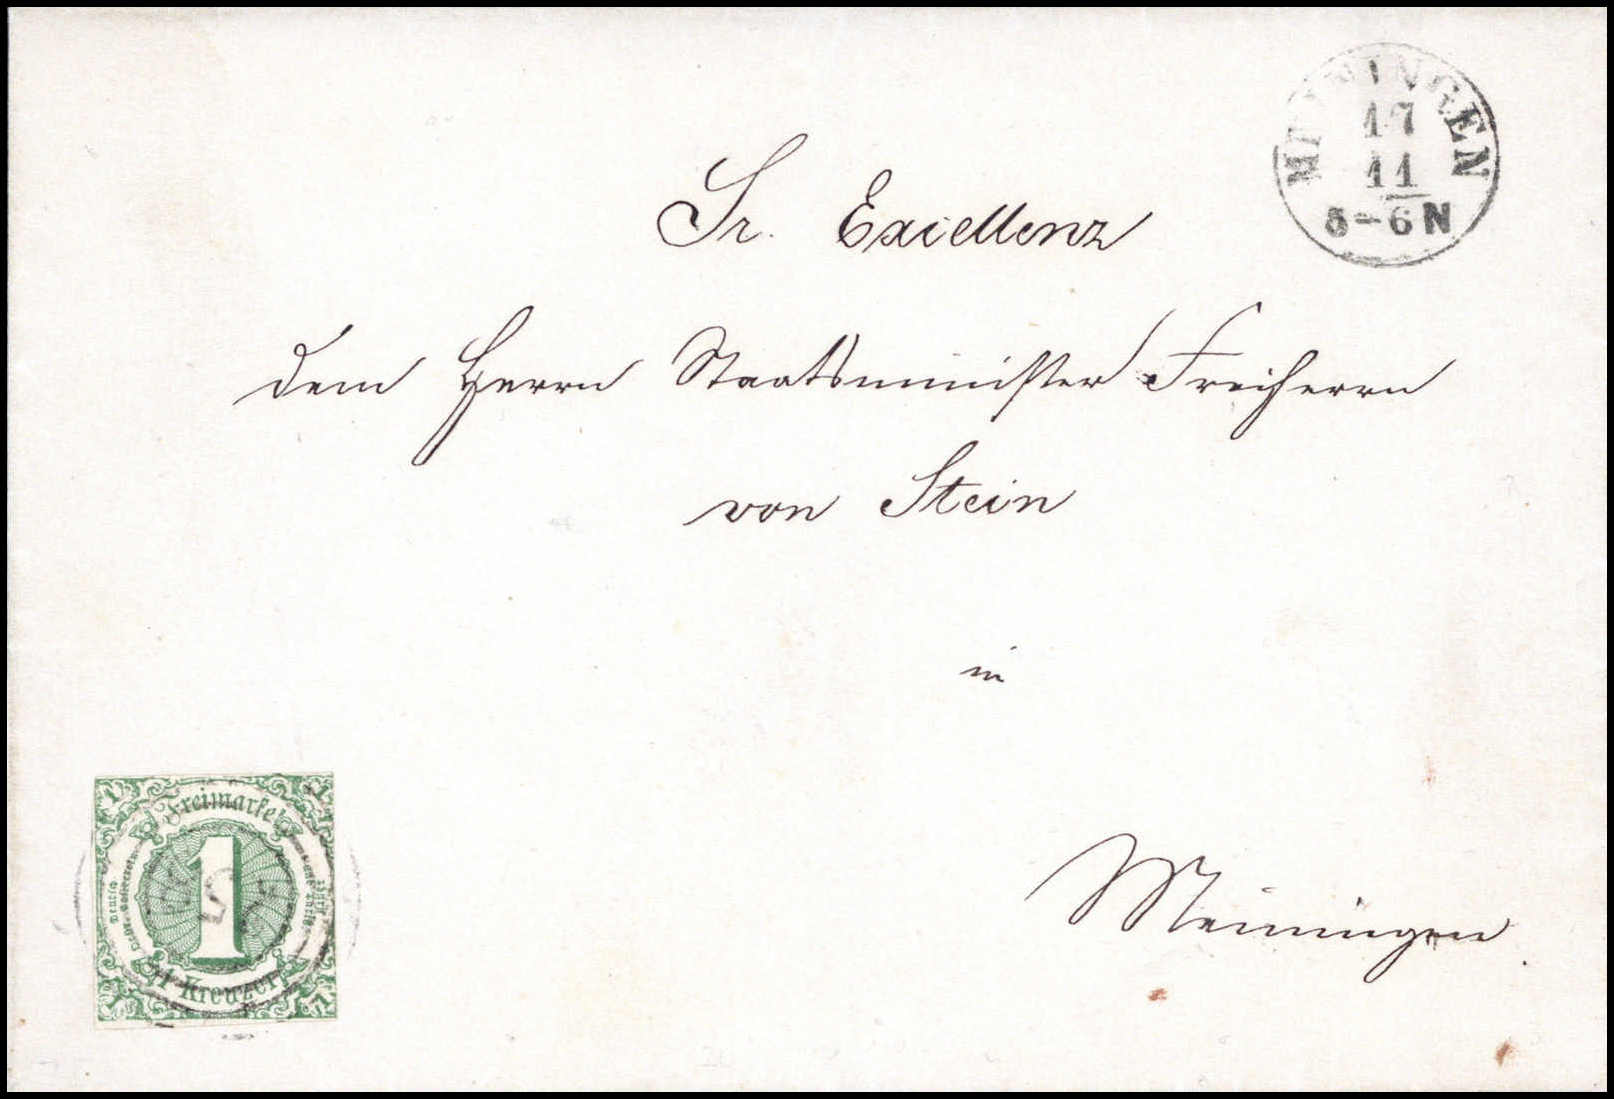 MEININGEN
17
11
5-6 N
Sr. Excellenz
dem Herrn Staatsminister Freiherrn
von Stein
in
Meiningen.
Freimarke
1
1 Kreuzer